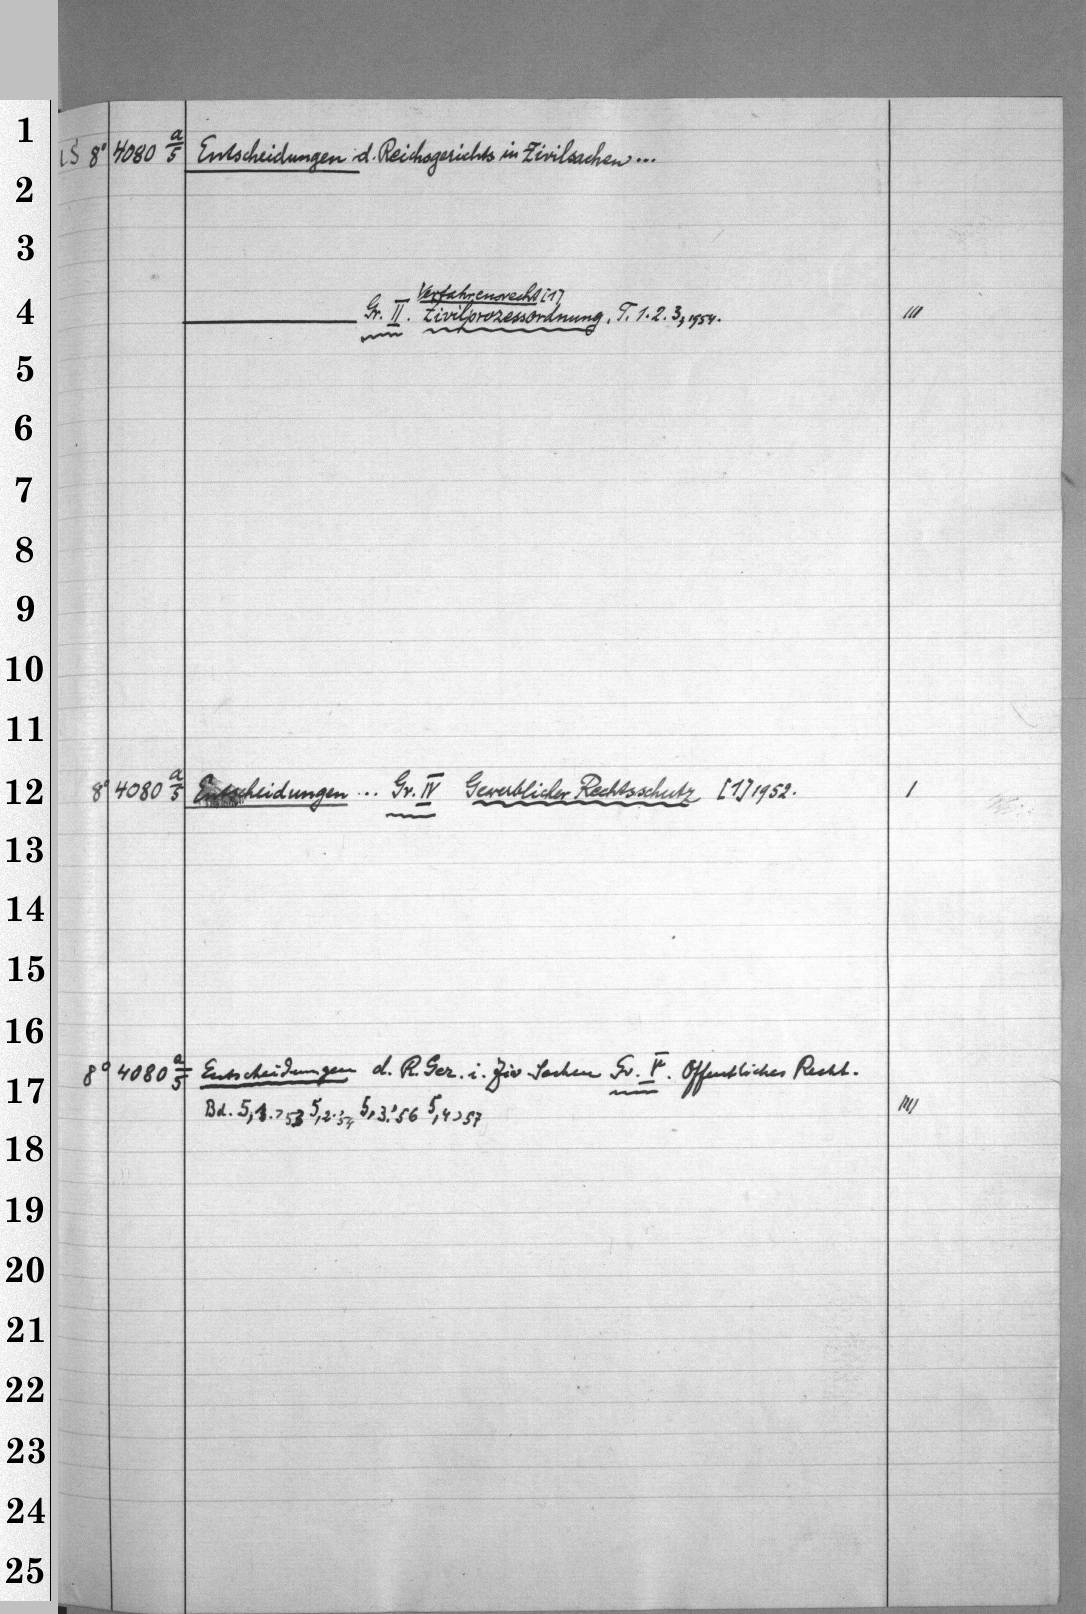 1
LS 8° 4080 a/5 Entscheidungen d. Reichsgerichts in Zivilsachen...
2
3
Verfahrensrecht [1]
4 Gr. II. Zivilprozessordnung, T. 1. 2. 3, 1954. III
5
6
7
8
9
10
11
12 8° 4080 a/5 Entscheidungen ... Gr. IV Gewerblicher Rechtsschutz [1] 1952. I
13
14
15
16
8° 4080 a/5 Entscheidungen d. R. Ger. i. Ziv Sachen Gr. V. Öffentliches Recht.
17
Bd. 5,1.>53 5,2.'54 5,3.'56 5,4>57 IIII
18
19
20
21
22
23
24
25